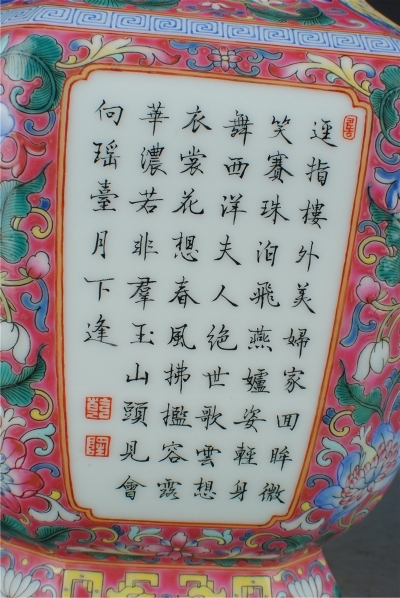 逕指樓外美婦家回眸微
笑賽珠泊飛燕爐姿輕身
舞西洋夫人绝世歌雲想
衣裳花想春風拂檻容露
華濃若非羣玉山頭見會
向瑶臺月下逢